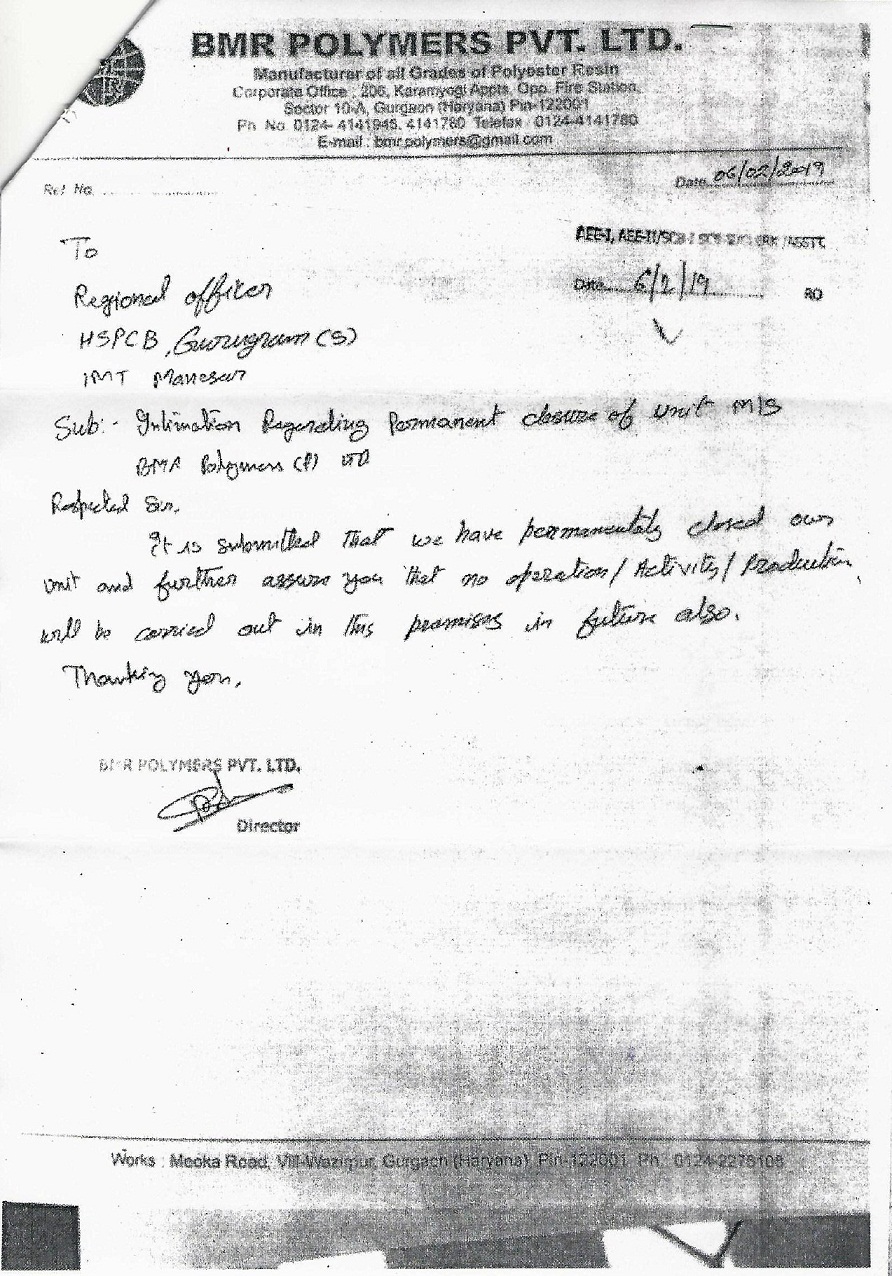 BMR POLYMERS PVT. LTD.
Manufacturer of all Grades of Polyester Resin
Corporate Office : 206, Karamyogi Appts, Opp. Fire Station,
Sector 10-A, Gurgaon (Haryana) Pin-122001
Ph No 0124- 4141945, 4141780 Telefax : 0124-4141780
E-mail : bmr.polymers@gmail.com
Ref No.
Date 06/02/2019
AEE-I, AEE-II/
Date 6/2/19
RO
To
Regional officer
HSPCB, Gurugram (S)
IMT Manesar
Sub:- Intimation Regarding Permanent closure of unit M/S
BMR Polymers (P) LTD
Respected Sir,
It is submitted that we have permanantely closed our
unit and further assure you that no operation/Activity/Production
will be carried out in this premises in future also.
Thanking you,
BMR POLYMERS PVT. LTD.
Director
Works : Meoka Road, Vill-Wazirpur, Gurgaon (Haryana) Pin-122001 Ph. 0124-2278108